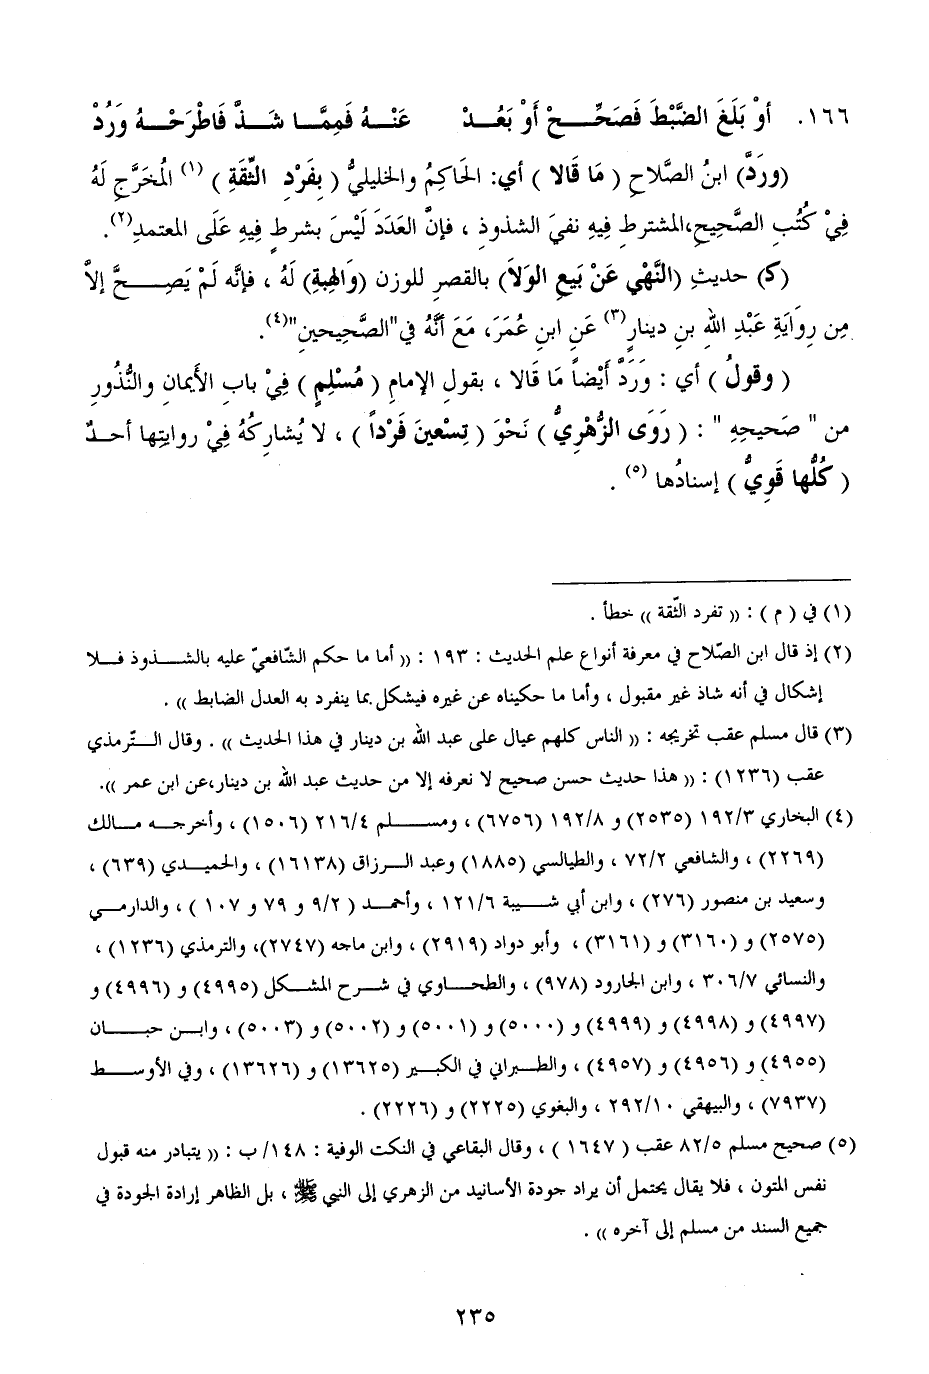 ١٦٦. أَوْ بَلَغَ الضَّبْطَ فَصَحِّحْ أَوْ بَعُدْ عَنْهُ فَمِمَّا شَذَّ فَاطْرَحْهُ وَرُدْ
(ورَدَّ) ابنُ الصَّلاحِ (مَا قَالا) أي: الحَاكِمُ والخليليُّ (بِفَرْدِ الثِّقَةِ) (١) المُخَرَّجِ لَهُ
فِيْ كُتُبِ الصَّحِيحِ،المشترطِ فِيهِ نفيَ الشذوذِ ، فإنَّ العَدَدَ لَيْسَ بشرطٍ فِيهِ عَلَى المعتمدِ(٢).
(كَـ) حديثِ (النَّهْيِ عَنْ بَيعِ الوَلاَ) بالقصرِ للوزن (وَالهِبَةِ) لَهُ ، فإنَّه لَمْ يَصِحَّ إلاَّ
مِن رِوَايَةِ عَبْدِ اللهِ بنِ دينارٍ(٣) عَنِ ابنِ عُمَرَ، مَعَ أنَّهُ في"الصَّحِيحينِ"(٤).
( وقولُ ) أي : وَرَدَّ أَيْضاً مَا قَالا ، بقولِ الإمامِ ( مُسْلِمٍ ) فِيْ بابِ الأَيمانِ والنُّذُورِ
من " صَحيحِهِ " : ( رَوَى الزُّهْرِيُّ ) نَحْوَ ( تِسْعينَ فَرْداً ) ، لا يُشاركُهُ فِيْ روايتِها أحدٌ
( كُلُّها قَوِيُّ ) إسنادُها (٥) .
(١) في ( م ) : (( تفرد الثّقة )) خطأ .
(٢) إذ قال ابن الصّلاح في معرفة أنواع علم الحديث : ١٩٣ : (( أما ما حكم الشّافعيّ عليه بالشذوذ فلا
إشكال في أنه شاذ غير مقبول ، وأما ما حكيناه عن غيره فيشكل بما ينفرد به العدل الضابط )) .
(٣) قال مسلم عقب تخريجه : (( الناس كلهم عيال على عبد الله بن دينار في هذا الحديث )) . وقال الترمذي
عقب (١٢٣٦) : (( هذا حديث حسن صحيح لا نعرفه إلا من حديث عبد الله بن دينار،عن ابن عمر )).
(٤) البخاري ١٩٢/٣ (٢٥٣٥) و ١٩٢/٨ (٦٧٥٦) ، ومسلم ٢١٦/٤ (١٥٠٦) ، وأخرجه مالك
(٢٢٦٩) ، والشافعي ٧٢/٢ ، والطيالسي (١٨٨٥) وعبد الرزاق (١٦١٣٨) ، والحميدي (٦٣٩) ،
وسعيد بن منصور (٢٧٦) ، وابن أبي شيبة ١٢١/٦ ، وأحمد ( ٩/٢ و ٧٩ و ١٠٧ ) ، والدارمي
(٢٥٧٥) و (٣١٦٠) و (٣١٦١) ، وأبو دواد (٢٩١٩) ، وابن ماجه (٢٧٤٧)، والترمذي (١٢٣٦) ،
والنسائي ٣٠٦/٧ ، وابن الجارود (٩٧٨) ، والطحاوي في شرح المشكل (٤٩٩٥) و (٤٩٩٦) و
(٤٩٩٧) و (٤٩٩٨) و (٤٩٩٩) و (٥٠٠٠) و (٥٠٠١) و (٥٠٠٢) و (٥٠٠٣) ، وابن حبان
(٤٩٥٥) و (٤٩٥٦) و (٤٩٥٧) ، والطبراني في الكبير (١٣٦٢٥) و (١٣٦٢٦) ، وفي الأوسط
(٧٩٣٧) ، والبيهقي ٢٩٢/١٠ ، والبغوي (٢٢٢٥) و (٢٢٢٦) .
(٥) صحيح مسلم ٨٢/٥ عقب ( ١٦٤٧ ) ، وقال البقاعي في النكت الوفية : ١٤٨/ ب : (( يتبادر منه قبول
نفس المتون ، فلا يقال يحتمل أن يراد جودة الأسانيد من الزهري إلى النبي ﷺ ، بل الظاهر إرادة الجودة في
جميع السند من مسلم إلى آخره )) .
٢٣٥